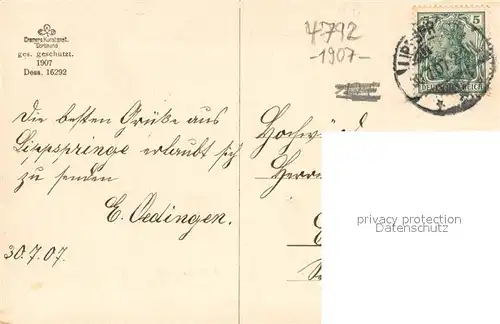 Cramers Kunstanst.
Dortmund
ges. geschützt.
1907
Dess. 16292
4792
-1907-
5
5
DEUTSCHES REICH
LIPPSPR
Die besten Grüße aus
Lippspringe erlaubt sich
zu senden
E. Oedingen.
30.7.07.
Herrn
privacy protection
Datenschutz